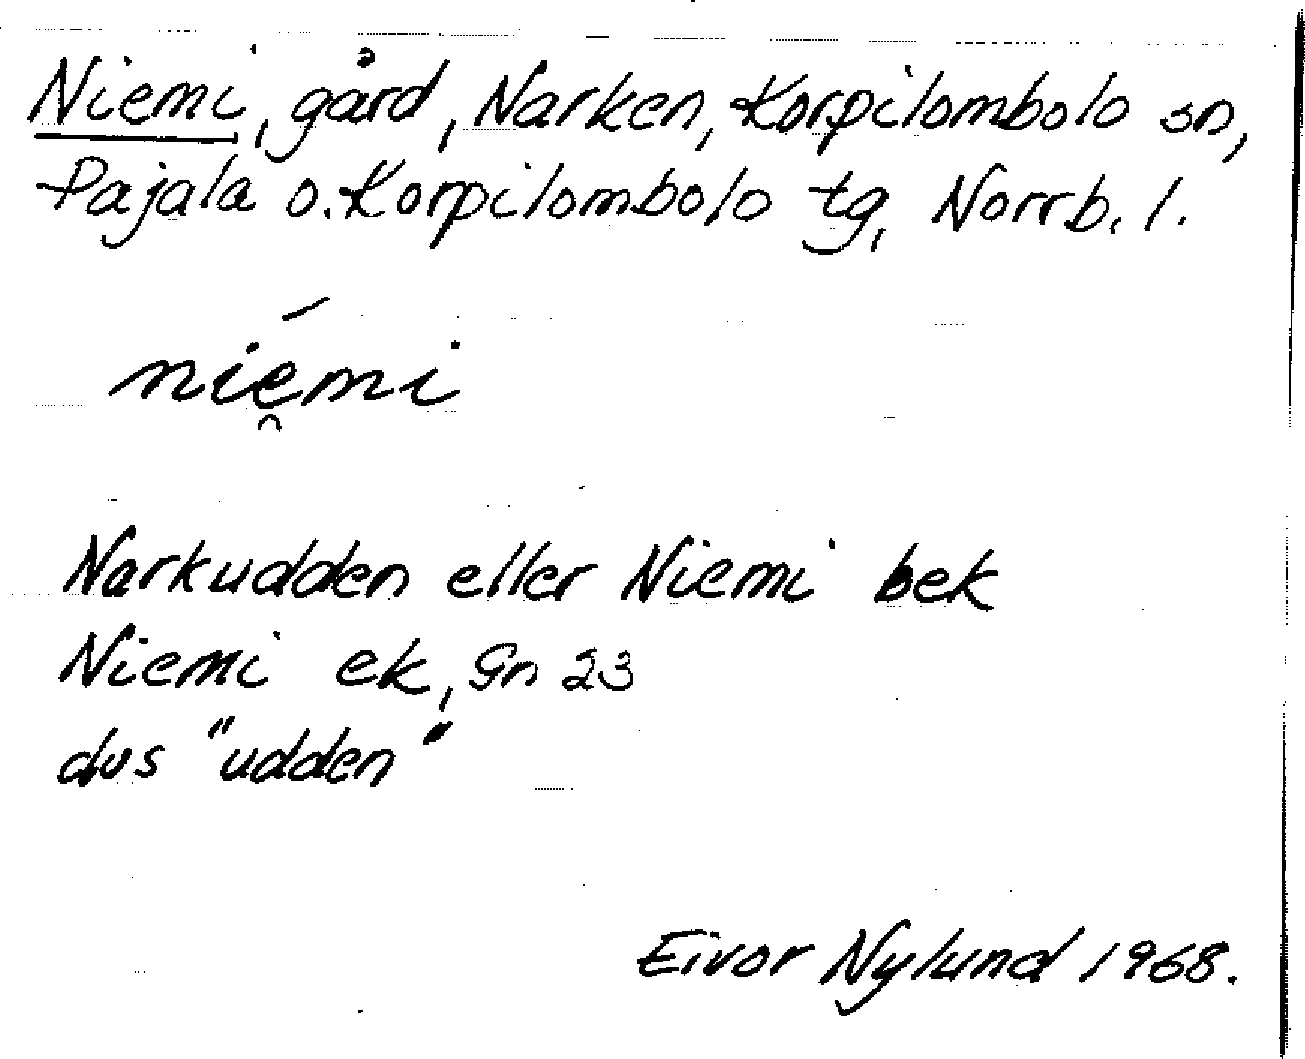 Niemi, gård, Narken, Korpilombolo sn,
Pajala o. Korpilombolo tg, Norrb. l.
níe̯mi
Narkudden eller Niemi bek
Niemi ek, Gn 23
dvs "udden"
Eivor Nylund 1968.